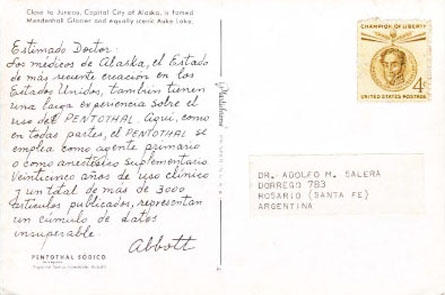 Close to Juneau, Capital City of Alaska, is famed
Mendenhall Glacier and equally scenic Auke Lake.
Estimado Doctor:
Los médicos de Alaska, el Estado
de más reciente creación en los
Estados Unidos, también tienen
una larga experiencia sobre el
uso del PENTOTHAL. Aquí, como
en todas partes, el PENTOTHAL se
emplea como agente primario
o como anestésico suplementario.
Veinticinco años de uso clínico
y un total de más de 3000
artículos publicados, representan
un cúmulo de datos
insuperable.
Abbott
PENTOTHAL SÓDICO
CHAMPION OF LIBERTY
4¢
UNITED STATES POSTAGE
DR. ADOLFO M. SALERA
DORREGO 783
ROSARIO (SANTA FE)
ARGENTINA